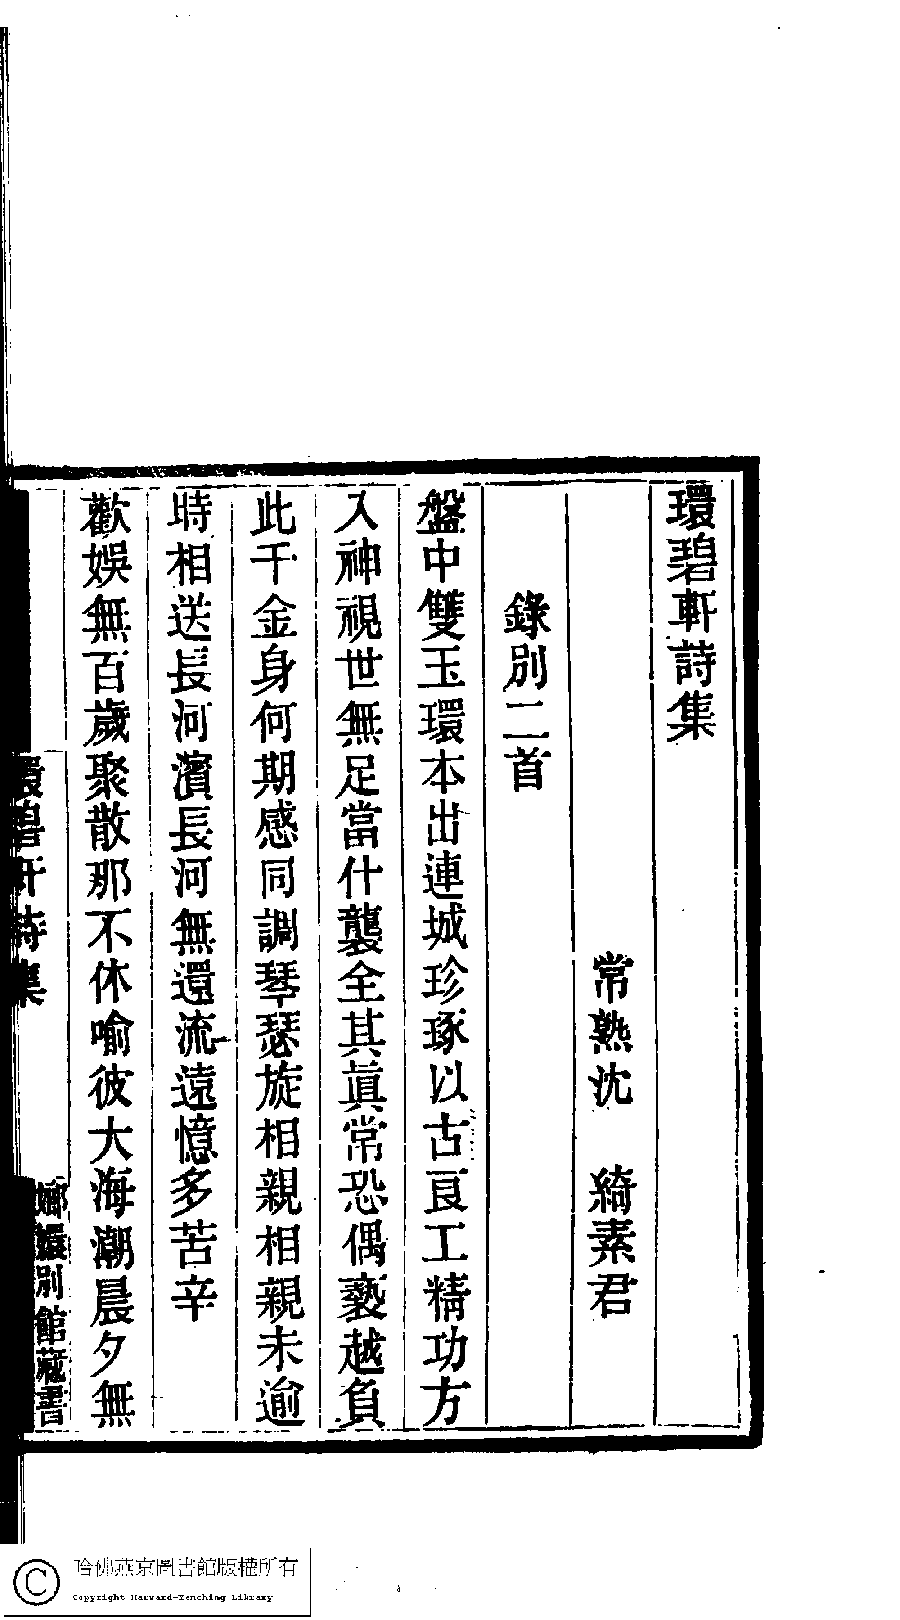 環碧軒詩集
常熟沈　綺素君
錄別二首
盤中雙玉環本出連城珍琢以古良工精功方
入神視世無足當什襲全其眞常恐偶褻越負
此千金身何期感同調琴瑟旋相親相親未逾
時相送長河濱長河無還流遠憶多苦辛
歡娛無百歲聚散那不休喻彼大海潮晨夕無
環碧軒詩集
嫏嬛別館藏書
哈佛燕京圖書館版權所有
Copyright Harvard-Yenching Library